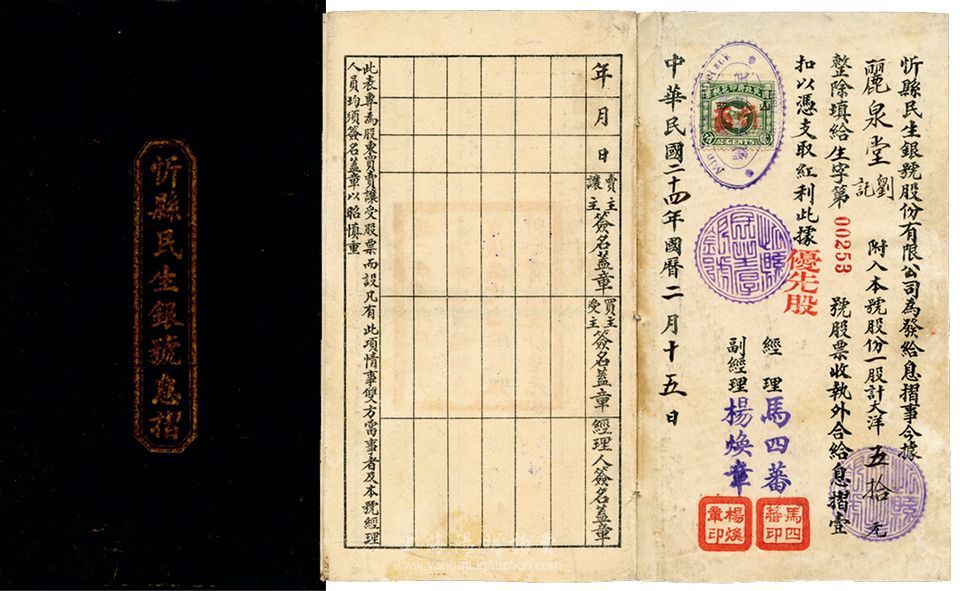 忻縣民生銀號息摺
忻縣民生銀號股份有限公司為發給息摺事今據
麗泉堂劉記 附入本號股份一股計大洋五拾元
整除填給生字第00253號股票收執外合給息摺壹
扣以憑支取紅利此據
優先股
經理 馬四蕃
副經理 楊煥章
馬四蕃印
楊煥章印
中華民國二十四年國曆二月十五日
CENTS
年 月 日
賣主讓主簽名蓋章
買主受主簽名蓋章
經理人簽名蓋章
此表專為股東買賣讓受股票而設凡有此項情事雙方當事者及本號經理
人員均須簽名蓋章以昭慎重